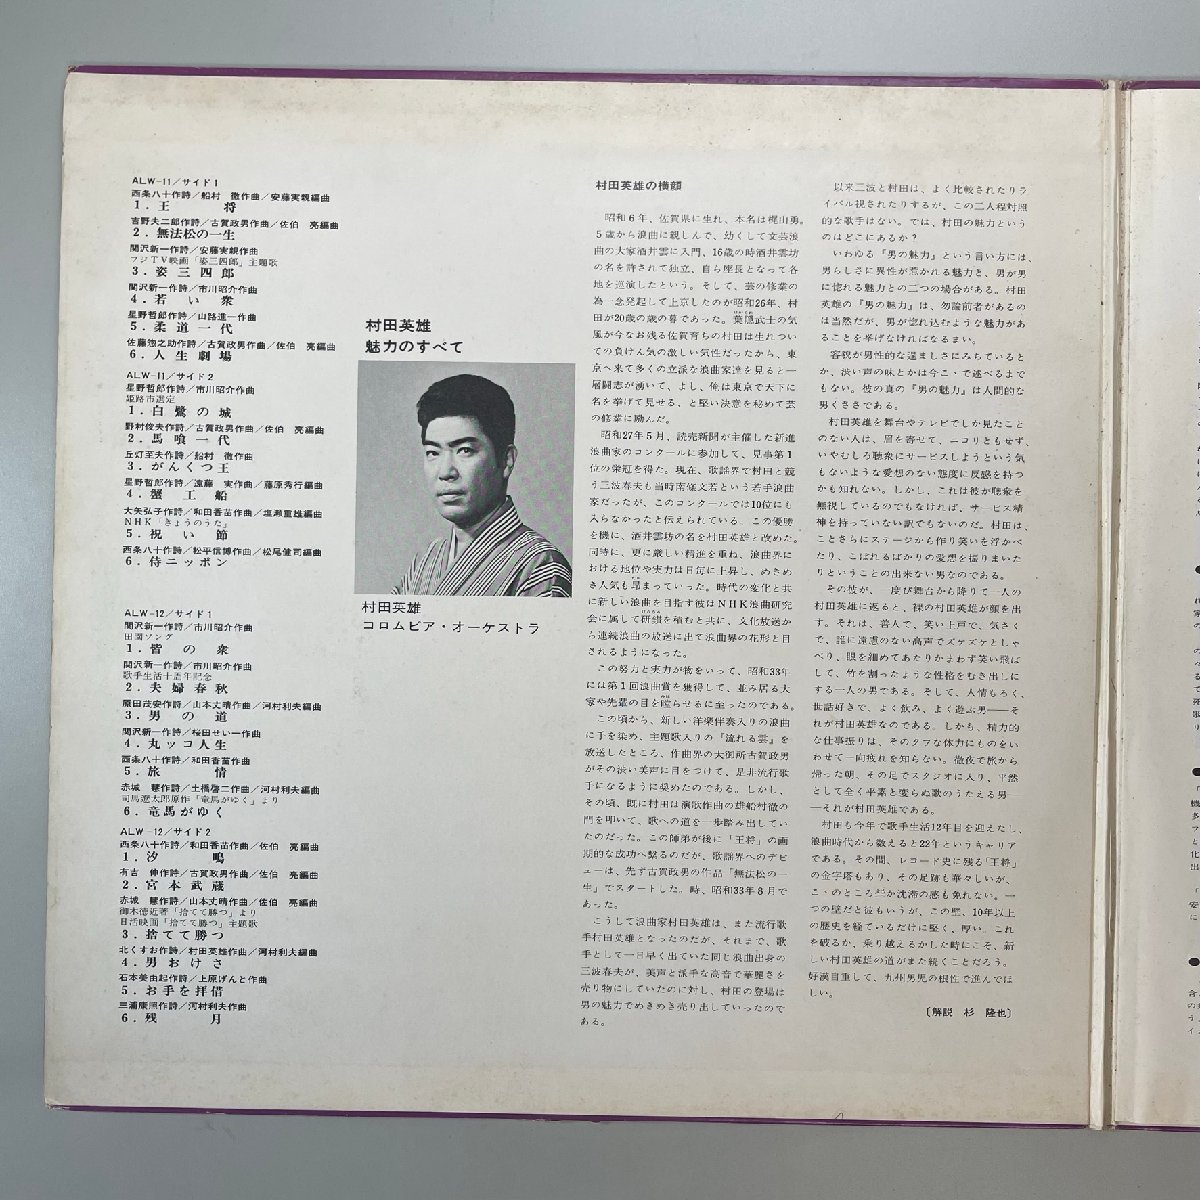 ALW-11/サイド1
西条八十作詩/船村　徹作曲/安藤実親編曲
1．王　　将
吉野夫二郎作詩/古賀政男作曲/佐伯　亮編曲
2．無法松の一生
関沢新一作詩/安藤実親作曲
フジTV映画「姿三四郎」主題歌
3．姿 三 四 郎
関沢新一作詩/市川昭介作曲
4．若　い　衆
星野哲郎作詩/山路進一作曲
5．柔 道 一 代
佐藤惣之助作詩/古賀政男作曲/佐伯　亮編曲
6．人 生 劇 場
ALW-11/サイド2
星野哲郎作詩/市川昭介作曲
姫路市選定
1．白 鷺 の 城
野村俊夫作詩/古賀政男作曲/佐伯　亮編曲
2．馬 喰 一 代
丘灯至夫作詩/船村　徹作曲
3．がんくつ王
星野哲郎作詩/遠藤　実作曲/藤原秀行編曲
4．蟹　工　船
大矢弘子作詩/和田香苗作曲/塩瀬重雄編曲
NHK「きょうのうた」
5．祝　い　節
西条八十作詩/松平信博作曲/松尾健司編曲
6．侍ニッポン
ALW-12/サイド1
関沢新一作詩/市川昭介作曲
田園ソング
1．皆　の　衆
関沢新一作詩/市川昭介作曲
歌手生活十周年記念
2．夫 婦 春 秋
原田茂安作詩/山本丈晴作曲/河村利夫編曲
3．男　の　道
関沢新一作詩/桜田せい一作曲
4．丸ッコ人生
西条八十作詩/和田香苗作曲
5．旅　　情
赤城　慧作詩/土橋啓二作曲/河村利夫編曲
司馬遼太郎原作「竜馬がゆく」より
6．竜馬がゆく
ALW-12/サイド2
西条八十作詩/和田香苗作曲/佐伯　亮編曲
1．汐　　鳴
有吉　伸作詩/古賀政男作曲/佐伯　亮編曲
2．宮 本 武 蔵
赤城　慧作詩/山本丈晴作曲/佐伯　亮編曲
御木徳近著「捨てて勝つ」より
日活映画「捨てて勝つ」主題歌
3．捨てて勝つ
北くすお作詩/村田英雄作曲/河村利夫編曲
4．男 お け さ
石本美由起作詩/上原げんと作曲
5．お手を拝借
三浦康照作詩/河村利夫作曲
6．残　　月
村田英雄
魅力のすべて
村田英雄
コロムビア・オーケストラ
村田英雄の横顔
昭和6年、佐賀県に生れ、本名は梶山勇。
5歳から浪曲に親しんで、幼くして文芸浪
曲の大家酒井雲に入門、16歳の時酒井雲坊
の名を許されて独立、自ら座長となって各
地を巡演したという。そして、芸の修業の
為一念発起して上京したのが昭和26年、村
田が20歳の歳の暮であった。葉隠武士の気
風が今なお残る佐賀育ちの村田は生れつい
ての負けん気の激しい気性だったから、東
京へ来て多くの立派な浪曲家達を見ると一
層闘志が湧いて、よし、俺は東京で天下に
名を挙げて見せる、と堅い決意を秘めて芸
の修業に励んだ。
昭和27年5月、読売新聞が主催した新進
浪曲家のコンクールに参加して、見事第1
位の栄冠を得た。現在、歌謡界で村田と競
う三波春夫も当時南條文若という若手浪曲
家だったが、このコンクールでは10位にも
入らなかったと伝えられている。この優勝
を機に、酒井雲坊の名を村田英雄と改めた。
同時に、更に厳しい精進を重ね、浪曲界に
おける地位や実力は日毎に上昇し、めきめ
き人気も昂まっていった。時代の変化と共
に新しい浪曲を目指す彼はNHK浪曲研究
会に属して研鑚を積むと共に、文化放送か
ら連続浪曲の放送に出て浪曲界の花形と目
されるようになった。
この努力と実力が物をいって、昭和33年
には第1回浪曲賞を獲得して、並み居る大
家や先輩の目を瞠らせるに至ったのである。
この頃から、新しい洋楽伴奏入りの浪曲
に手を染め、主題歌入りの『流れる雲』を
放送したところ、作曲界の大御所古賀政男
がその渋い美声に目をつけて、是非流行歌
手になるように奨めたのである。しかし、
その頃、既に村田は演歌作曲の雄船村徹の
門を叩いて、歌への道を一歩踏み出してい
たのだった。この師弟が後に「王将」の画
期的な成功へ繋るのだが、歌謡界へのデビ
ューは、先ず古賀政男の作品「無法松の一
生」でスタートした。時、昭和33年8月で
あった。
こうして浪曲家村田英雄は、また流行歌
手村田英雄となったのだが、それまで、歌
手として一日早く出ていた同じ浪曲出身の
三波春夫が、美声と派手な高音で華麗さを
売り物にしていたのに対し、村田の登場は
男の魅力でめきめき売り出していったので
ある。
以来三波と村田は、よく比較されたりラ
イバル視されたりするが、この二人程対照
的な歌手はない。では、村田の魅力という
のはどこにあるか？
いわゆる『男の魅力』という言い方には、
男らしさに異性が惹かれる魅力と、男が男
に惚れる魅力との二つの場合がある。村田
英雄の『男の魅力』は、勿論前者があるの
は当然だが、男が惚れ込むような魅力があ
ることを挙げなければなるまい。
容貌が男性的な逞ましさにみちていると
か、渋い声の味とかは今こゝで述べるまで
もない。彼の真の『男の魅力』は人間的な
男くささである。
村田英雄を舞台やテレビでしか見たこと
のない人は、眉を寄せて、ニコリともせず、
いやむしろ聴衆にサービスしようという気
もないような愛想のない態度に反感を持つ
かも知れない。しかし、これは彼が聴衆を
無視しているのでもなければ、サービス精
神を持っていない訳でもないのだ。村田は、
ことさらにステージから作り笑いを浮かべ
たり、こぼれるばかりの愛想を振りまいた
りということの出来ない男なのである。
その彼が、一度び舞台から降りて一人の
村田英雄に返ると、裸の村田英雄が顔を出
す。それは、善人で、笑い上戸で、気さく
で、誰に遠慮のない高声でズケズケとしゃ
べり、眼を細めてあたりかまわず笑い飛ば
して、竹を割ったような性格をむき出しに
する一人の男である。そして、人情もろく、
世話好きで、よく飲み、よく遊ぶ男――そ
れが村田英雄なのである。しかも、精力的
な仕事振りは、そのタフな体力にものをい
わせて一向疲れを知らない。徹夜で旅から
帰った朝、その足でスタジオに入り、平然
として全く平素と変らぬ歌のうたえる男―
―それが村田英雄である。
村田も今年で歌手生活12年目を迎えたし、
浪曲時代から数えると22年というキャリア
である。その間、レコード史に残る「王将」
の金字塔もあり、その足跡も華々しいが、
こゝのところ些か沈滞の感も免れない。一
つの壁だと彼もいうが、この壁、10年以上
の歴史を経ているだけに堅く、厚い。これ
を破るか、乗り越えるかした時にこそ、新
しい村田英雄の道がまた続くことだろう。
好漢自重して、九州男児の根性で進んでほ
しい。
〔解説　杉　隆也〕